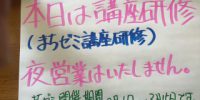 本日は講座研修
(まちゼミ講座研修)
夜営業はいたしません。
開催期間